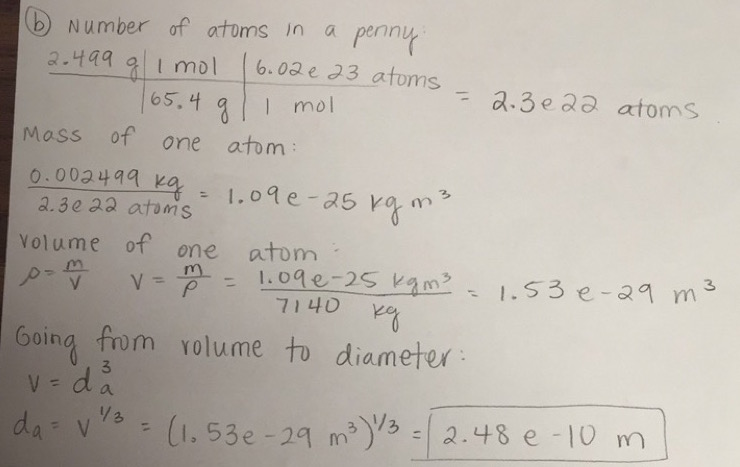 (b) Number of atoms in a penny:
2.499 g | 1 mol | 6.02e23 atoms = 2.3e22 atoms
65.4 g | 1 mol
Mass of one atom:
0.002499 kg / 2.3e22 atoms = 1.09e-25 kg m³
Volume of one atom:
ρ = m/V V = m/ρ = 1.09e-25 kgm³ / 7140 kg = 1.53e-29 m³
Going from volume to diameter:
V = dₐ³
dₐ = V^1/3 = (1.53e-29 m³)^1/3 = 2.48e-10 m